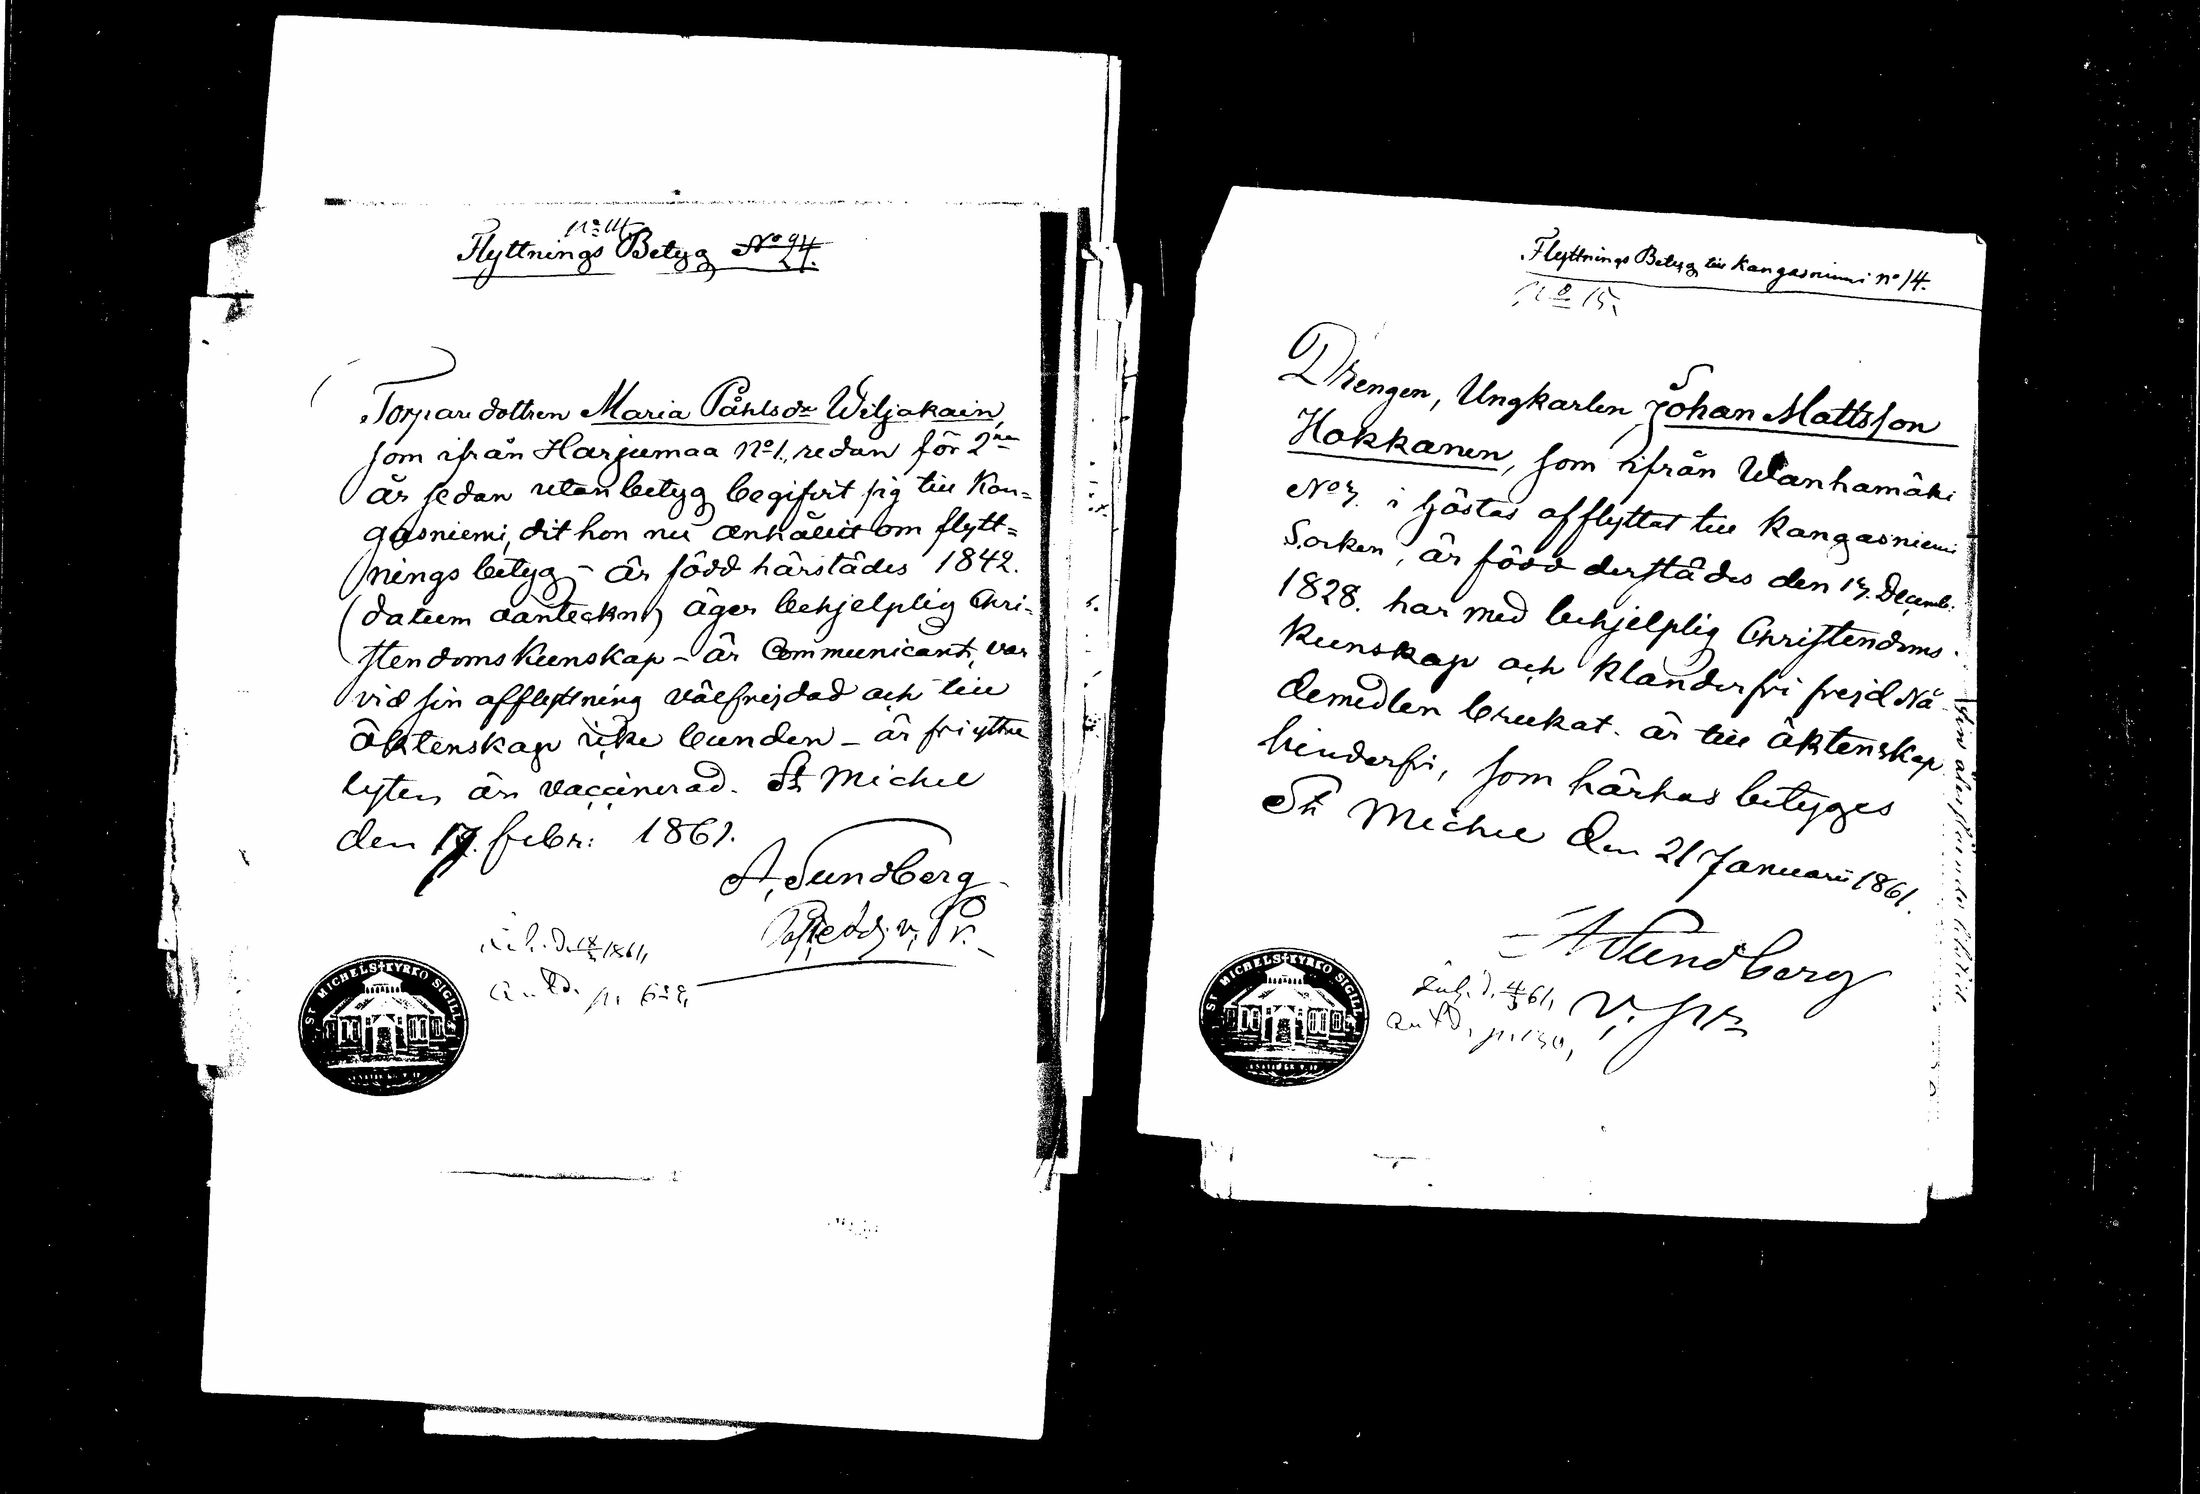 No 14
Flyttnings Betyg No 24.
Torparedottren Maria Påhlsdr Wiljakain,
som ifrån Harjumaa No 1., redan för 2ne
år sedan utan betyg begifvit sig till Kan=
gasniemi, dit hon nu anhållit om flytt=
nings betyg – är född härstädes 1842.
(datum oanteckn) äger behjelplig Chri=
stendomskunskap – är Communicant, var
vid sin afflyttning välfrejdad och till
äktenskap icke bunden – är fri yttre
lyten, är vaccinerad. St Michel
den 17. Febr: 1861.
A, Sundberg
v. Pr.
Inl. d. 18/3 1861,
p. 652,
ST MICHELS KYRKO SIGILL
Flyttnings Betyg till Kangasniemi no 14.
No 15.
Drengen, Ungkarlen Johan Mattsson
Hokkanen, som ifrån Wanhamäki
No 7. i höstas afflyttat till Kangasniemi
Socken, är född derstädes den 17. Decemb.
1828. har med behjelplig Christendoms
kunskap och klanderfri frejd Nå-
demedlen brukat. är till äktenskap
hinderfri, som härhos betygges
St Michel den 21 Januarii 1861.
A Sundberg
v. pr
Inl. d. 4/3 61,
p. 130,
ST MICHELS KYRKO SIGILL